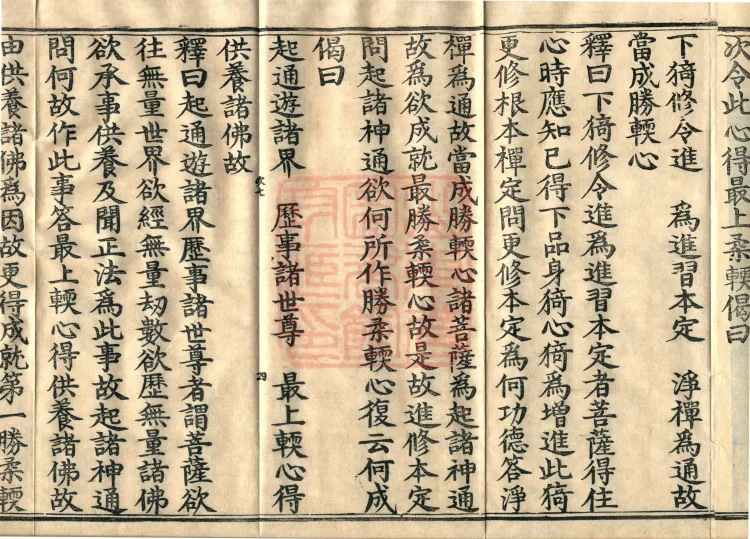 次令此心得最上柔輭偈曰
下猗修令進　為進習本定　淨禪為通故
當成勝輭心
釋曰下猗修令進為進習本定者菩薩得住
心時應知已得下品身猗心猗為增進此猗
更修根本禪定問更修本定為何功德答淨
禪為通故當成勝輭心諸菩薩為起諸神通
故為欲成就最勝柔輭心故是故進修本定
問起諸神通欲何所作勝柔輭心復云何成
偈曰
起通遊諸界　歷事諸世尊　最上輭心得
供養諸佛故
釋曰起通遊諸界歷事諸世尊者謂菩薩欲
往無量世界欲經無量劫數欲歷無量諸佛
欲承事供養及聞正法為此事故起諸神通
問何故作此事答最上輭心得供養諸佛故
由供養諸佛為因故更得成就第一勝柔輭